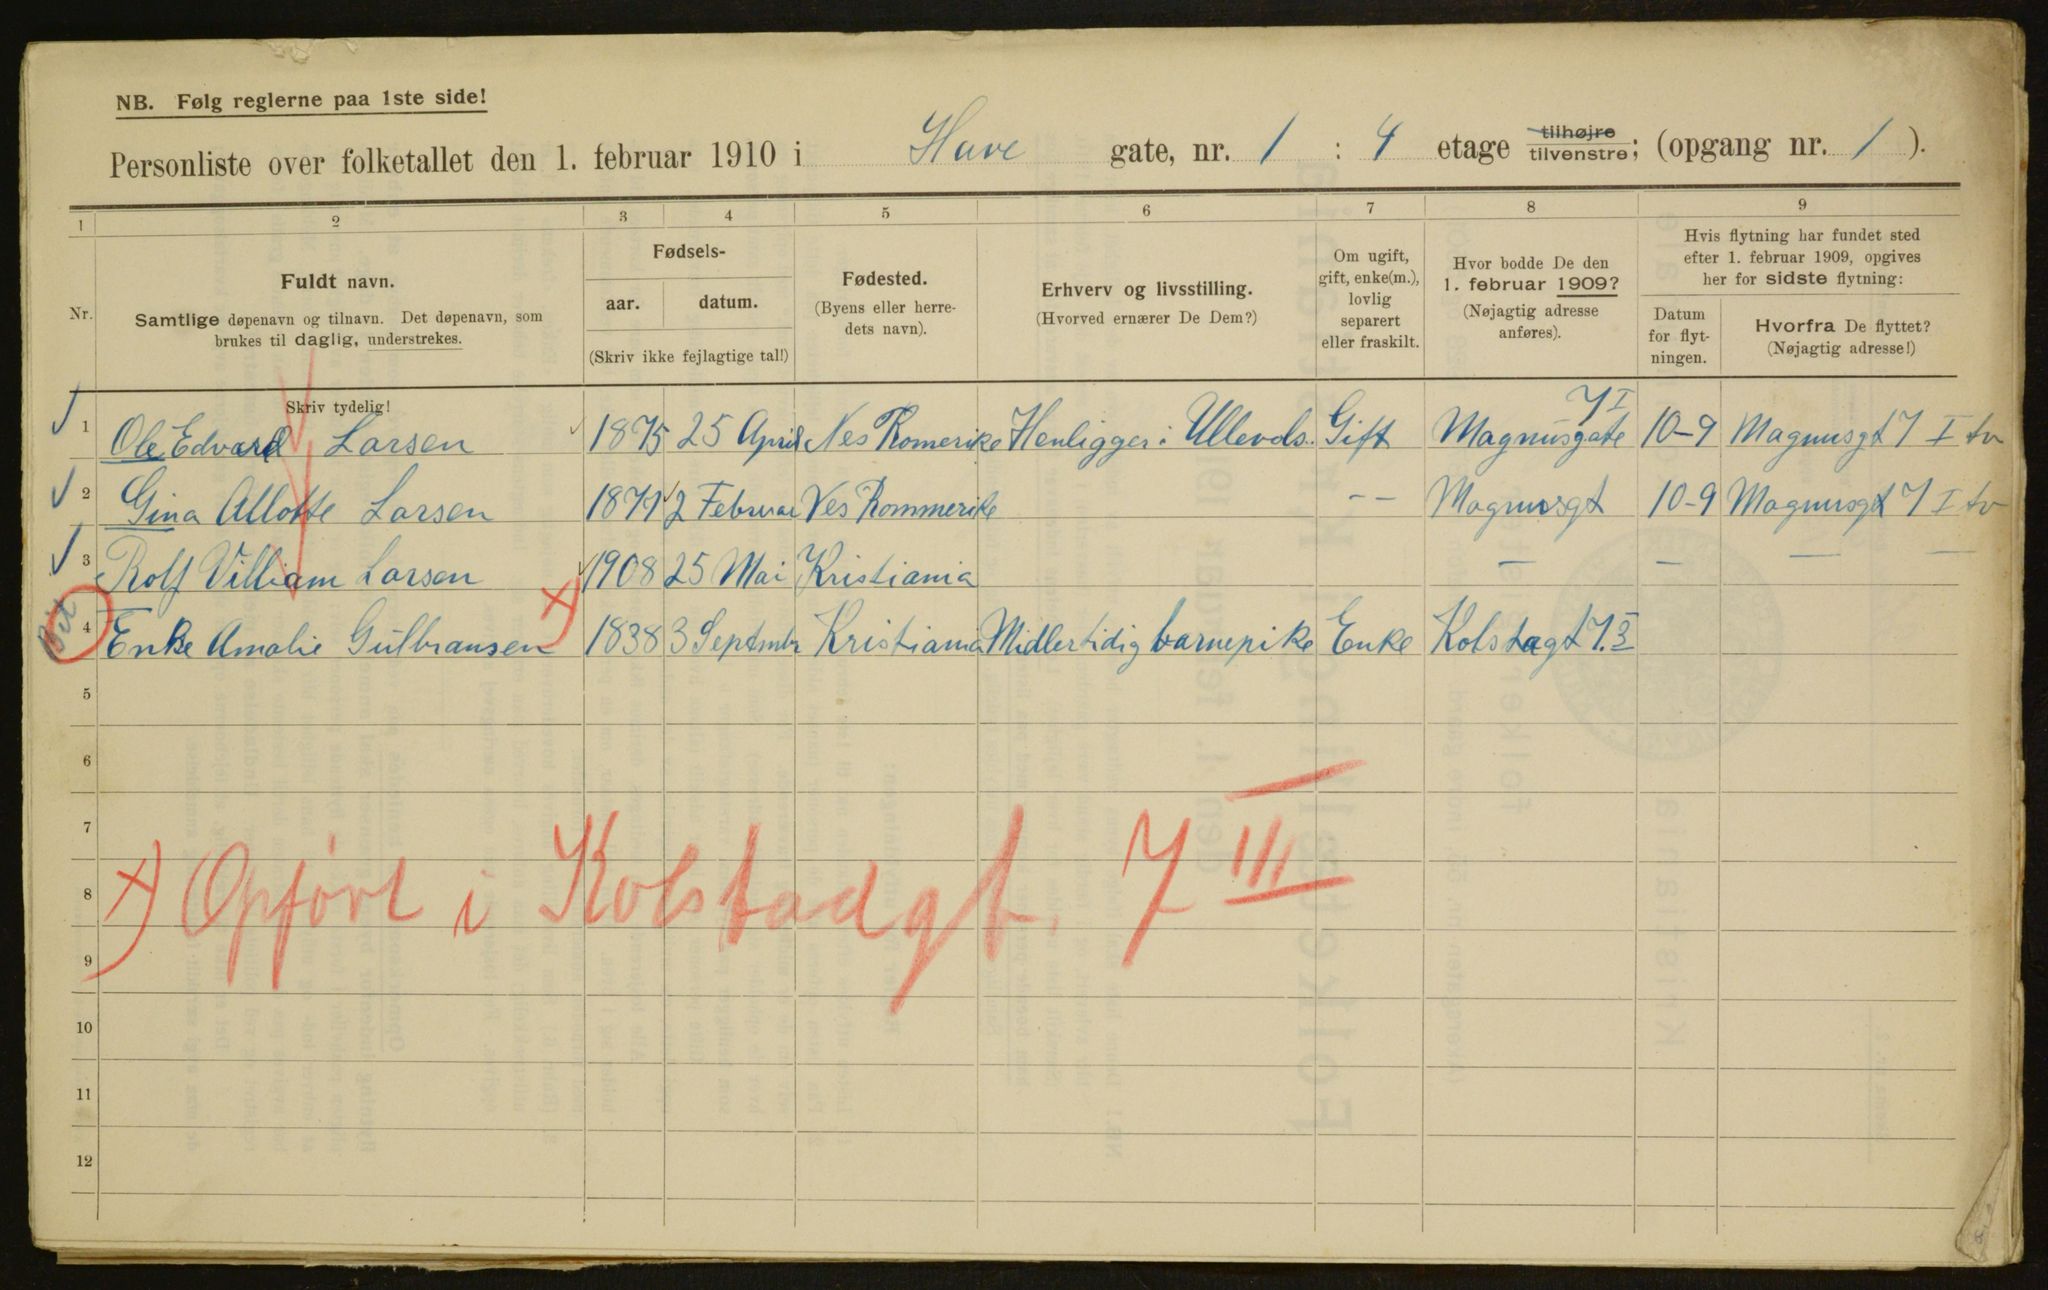 NB. Følg reglerne paa 1ste side!
Personliste over folketallet den 1. februar 1910 i Have gate, nr. 1 : 4 etage tilhøjre tilvenstre; (opgang nr. 1 ).
1 2 3 4 5 6 7 8 9
Nr.
Fuldt navn.
Samtlige døpenavn og tilnavn. Det døpenavn, som
brukes til daglig, understrekes.
Skriv tydelig!
Fødsels-
aar. datum.
(Skriv ikke fejlagtige tal!)
Fødested.
(Byens eller herre-
dets navn).
Erhverv og livsstilling.
(Hvorved ernærer De Dem?)
Om ugift,
gift, enke(m.),
lovlig
separert
eller fraskilt.
Hvor bodde De den
1. februar 1909?
(Nøjagtig adresse
anføres).
Hvis flytning har fundet sted
efter 1. februar 1909, opgives
her for sidste flytning:
Datum
for flyt-
ningen.
Hvorfra De flyttet?
(Nøjagtig adresse!)
1 Ole Edvard Larsen 1875 25 April Nes Romerike Henligger i Ullevols. Gift Magnusgate 7 I 10-9 Magnusgt 7 I tv
2 Gina Allotte Larsen 1871 2 Februar Nes Rommerike -- Magnusgt 10-9 Magnusgt 7 I tv
3 Rolf Villiam Larsen 1908 25 Mai Kristiania — — — —
4 Enke Amalie Gulbransen 1838 3 Septmbr Kristiania Midlertidig barnepike Enke Kolstagt 7.3
5
6
7
8
9
10
11
12
x) Opført i Kolstadgt. 7 III